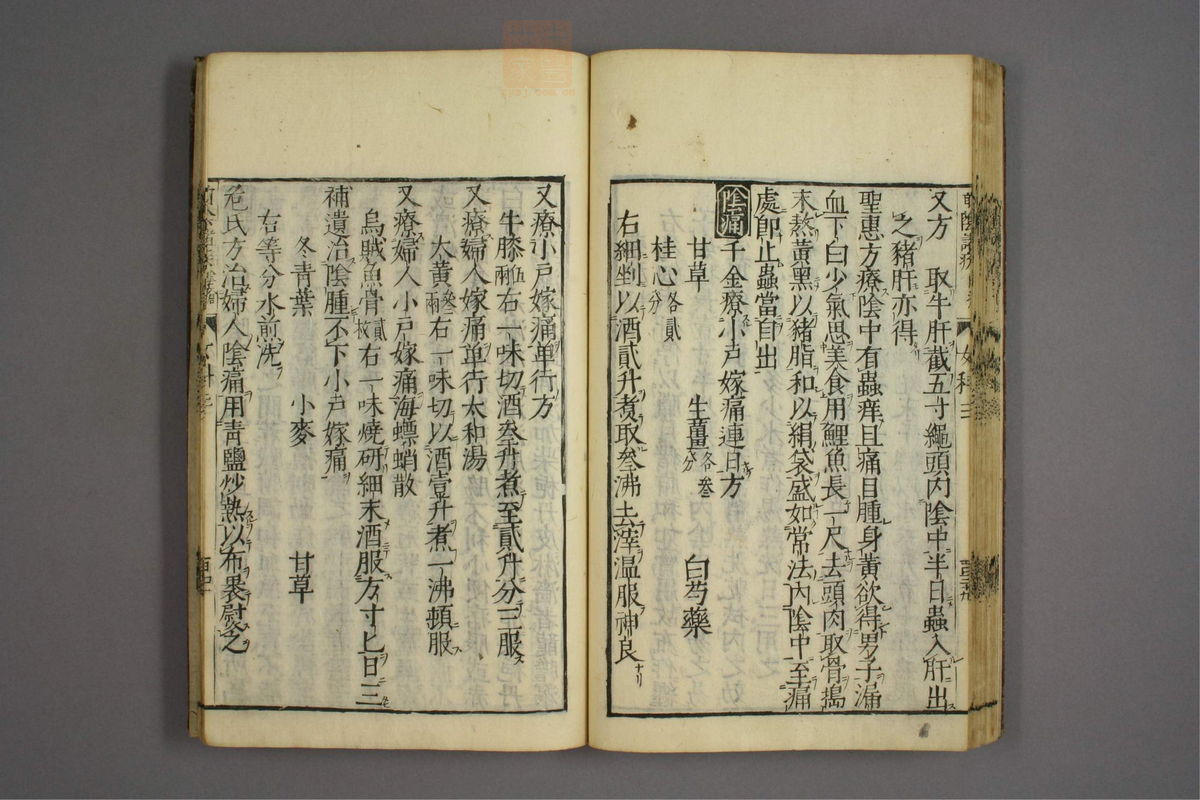 又方 取牛肝截五寸繩頭內陰中半日蟲入肝出
之豬肝亦得
聖惠方療陰中有蟲痒且痛目腫身黃欲得男子漏
血下白少氣思美食用鯉魚長一尺去頭肉取骨搗
末熬黃黑以豬脂和以絹袋盛如常法內陰中至痛
處即止蟲當自出
陰痛 千金療小戶嫁痛連日方
甘草 生薑各叁分 白芍藥
桂心各貳分
右細剉以酒貳升煮取叁沸去滓溫服神良
又療小戶嫁痛單行方
牛膝伍兩右一味切酒叁升煮至貳升分三服
又療婦人嫁痛單行大和湯
大黃叁兩右一味切以酒壹升煮一沸頓服
又療婦人小戶嫁痛海螵蛸散
烏賊魚骨貳枚右一味燒研細末酒服方寸匕日三
補遺治陰腫不下小戶嫁痛
冬青葉 小麥 甘草
右等分水煎洗
危氏方治婦人陰痛用青鹽炒熱以布裹熨之